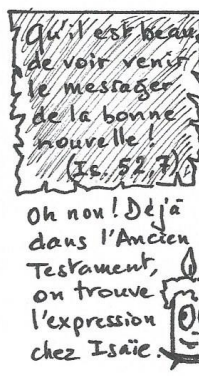 Qu'il est beau
de voir venir
le messager
de la bonne
nouvelle !
(Is. 52,7).
Oh non ! Déjà
dans l'Ancien
Testament,
on trouve
l'expression
chez Isaïe.